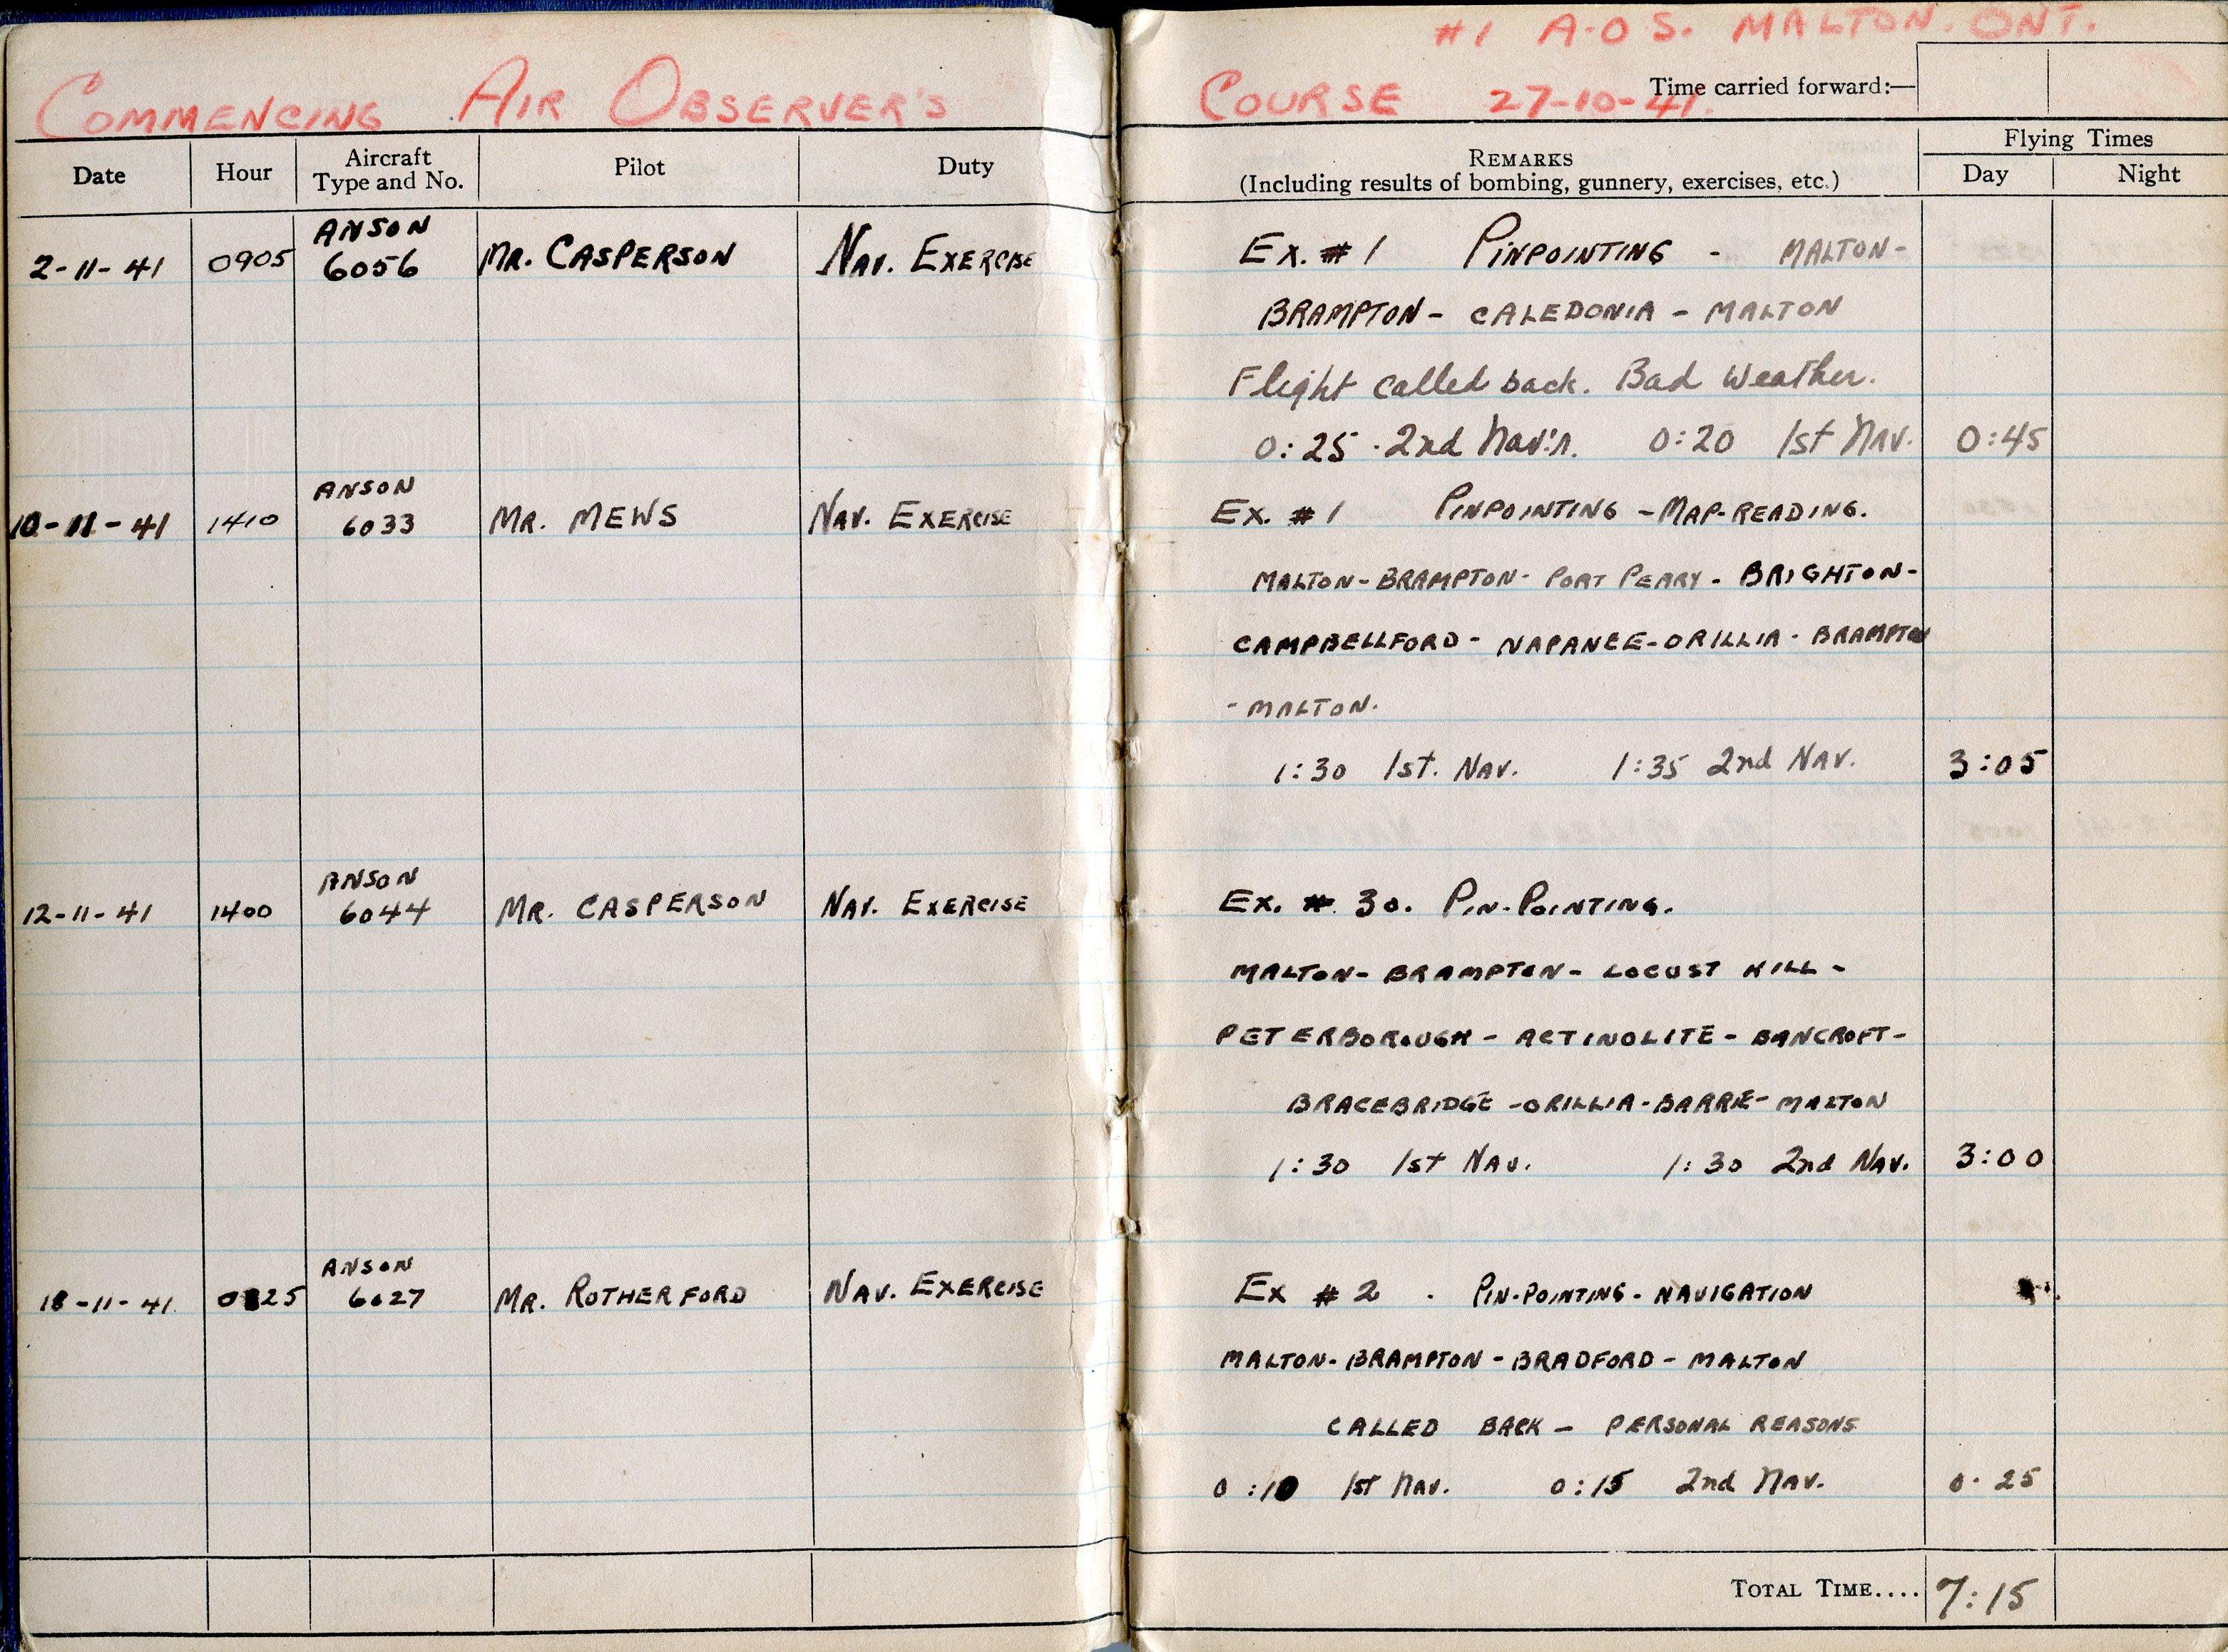 #1 A.O.S. MALTON. ONT.
COMMENCING AIR OBSERVER'S COURSE 27-10-41.
Time carried forward:—
Date Hour Aircraft Type and No. Pilot Duty
REMARKS
(Including results of bombing, gunnery, exercises, etc.)
Flying Times
Day Night
ANSON
2-11-41 0905 6056 MR. CASPERSON NAV. EXERCISE Ex. #1 PINPOINTING - MALTON-
BRAMPTON - CALEDONIA - MALTON
Flight called back. Bad Weather.
0:25 2nd Nav'n. 0:20 1st NAV. 0:45
ANSON
10-11-41 1410 6033 MR. MEWS NAV. EXERCISE Ex. #1 PINPOINTING - MAP-READING.
MALTON-BRAMPTON- PORT PERRY - BRIGHTON-
CAMPBELLFORD - NAPANEE-ORILLIA - BRAMPTON
- MALTON.
1:30 1st. NAV. 1:35 2nd NAV. 3:05
ANSON
12-11-41 1400 6044 MR. CASPERSON NAV. EXERCISE Ex. # 30. PIN-POINTING.
MALTON- BRAMPTON- LOCUST HILL -
PETERBOROUGH - ACTINOLITE - BANCROFT-
BRACEBRIDGE -ORILLIA-BARRIE- MALTON
1:30 1st NAV. 1:30 2nd NAV. 3:00
ANSON
18-11-41 6027 MR. ROTHERFORD NAV. EXERCISE Ex #2 . PIN-POINTING - NAVIGATION
MALTON-BRAMPTON-BRADFORD - MALTON
CALLED BACK - PERSONAL REASONS
0:10 1st NAV. 0:15 2nd NAV. 0.25
TOTAL TIME.... 7:15